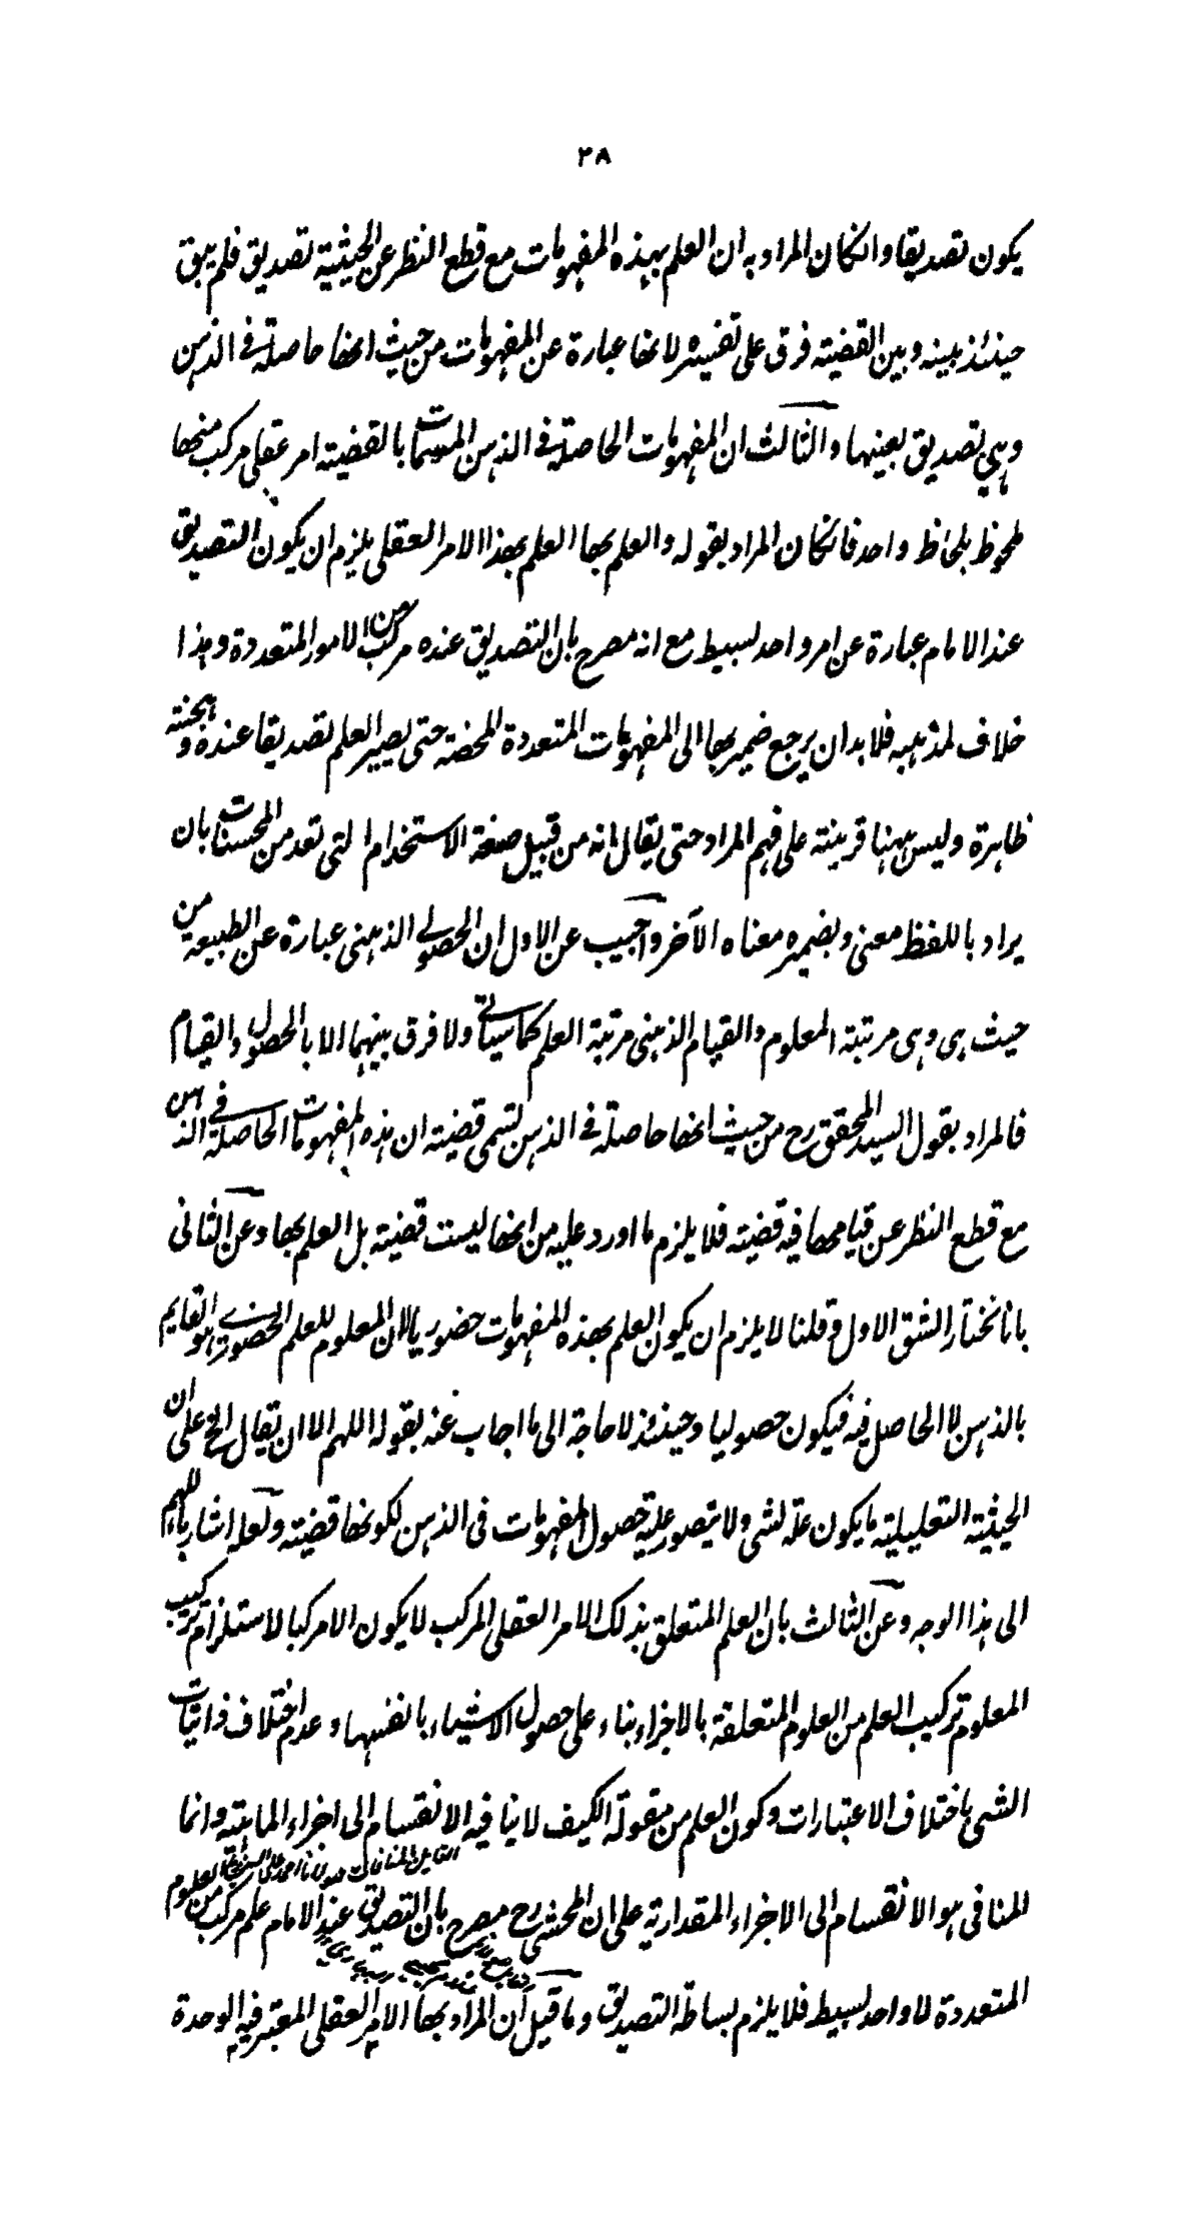 ٢٨
يكون تصديقا وانكان المراد به ان العلم بهذه المفهومات مع قطع النظر عن الحيثية تصديق فلم يبق
حينئذ بينه وبين القضية فرق على تفسيره لانها عبارة عن المفهومات من حيث انها حاصلة فى الذهن
وهي تصديق بعينها والثالث ان المفهومات الحاصلة فى الذهن المسمات بالقضية امر عقلى مركب منها
ملحوظ بلحاظ واحد فانكان المراد بقوله والعلم بها العلم بهذا الامر العقلى يلزم ان يكون التصديق
عند الامام عبارة عن امر واحد بسيط مع انه مصرح بان التصديق عنده مركب من الامور المتعددة وهذا
خلاف لمذهبه فلابد ان يرجع ضمير بها الى المفهومات المتعددة المحضة حتى يصير العلم تصديقا عنده و
ظاهرة وليس ههنا قرينة على فهم المراد حتى يقال انه من قبيل صنعة الاستخدام التى تعد من المحسنات بان
يراد باللفظ معنى وبضميره معناه الآخر واجيب عن الاول ان الحصولى الذهنى عبارة عن الطبيعة من
حيث هى وهى مرتبة المعلوم والقيام الذهنى مرتبة العلم كما سياتى ولا فرق بينهما الا بالحصول والقيام
فالمراد بقول السيد المحقق رح من حيث انها حاصلة فى الذهن تسمى قضية ان هذه المفهومات الحاصلة فى الذهن
مع قطع النظر عن قيامها فيه قضية فلا يلزم ما اورد عليه من انها ليست قضية بل العلم بها وعن الثانى
بانا نختار الشق الاول وقلنا لا يلزم ان يكون العلم بهذه المفهومات حضوريا لان المعلوم للعلم الحضورى هو القايم
بالذهن لا الحاصل فيه فيكون حصوليا وحينئذ لا حاجة الى ما اجاب عنه بقوله اللهم الا ان يقال الخ على ان
الحيثية التعليلية ما يكون علة لشى ولا يتصور علية حصول المفهومات فى الذهن لكونها قضية ولعله اشار باللهم
الى هذا الوجه وعن الثالث بان العلم المتعلق بذلك الامر العقلى المركب لا يكون الا مركبا لاستلزام تركيب
المعلوم تركيب العلم من العلوم المتعلقة بالاجزاء بناء على حصول الاشياء بانفسها وعدم اختلاف ذاتيات
الشى باختلاف الاعتبارات وكون العلم من مقولة الكيف لا ينافيه الانقسام الى اجزاء الماهية وانما
المنافى هو الانقسام الى الاجزاء المقدارية على ان المحشى رح مصرح بان التصديق عند الامام علم مركب من العلوم
المتعددة لا واحد بسيط فلا يلزم بساطة التصديق وما قيل ان المراد بها الامر العقلى المعتبر فيه الوحدة